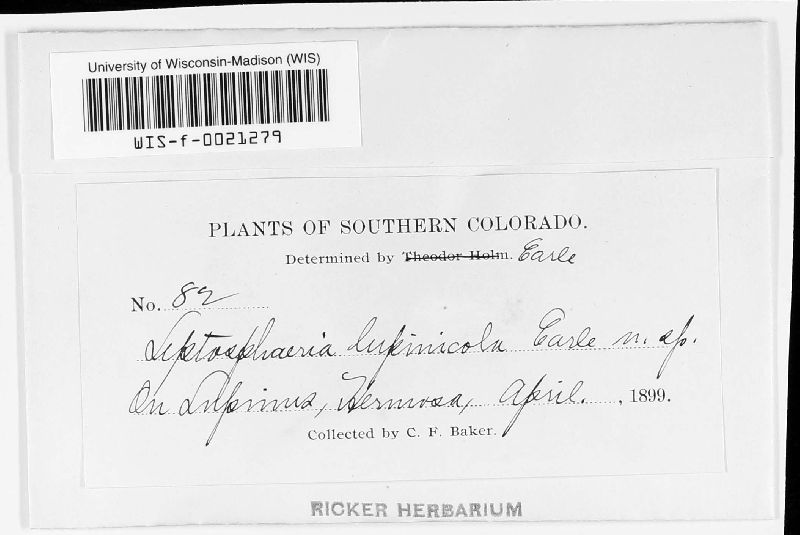 University of Wisconsin-Madison (WIS)
WIS-f-0021279
PLANTS OF SOUTHERN COLORADO.
Determined by Theodor Holm. Earle
No. 82
Leptosphaeria lupinicola Earle n. sp.
On Lupinus, Hermosa, April. , 1899.
Collected by C. F. Baker.
RICKER HERBARIUM